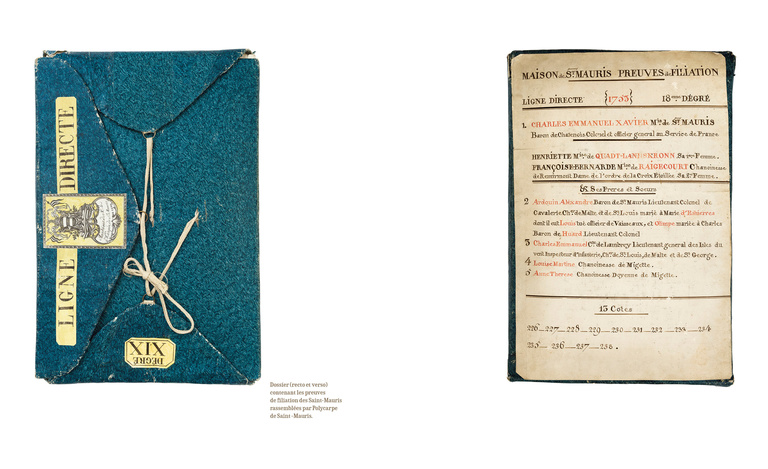 LIGNE DIRECTE
DEGRÉ
XIX
Dossier (recto et verso)
contenant les preuves
de filiation des Saint-Mauris
rassemblées par Polycarpe
de Saint-Mauris.
MAISON de St MAURIS PREUVES de FILIATION
LIGNE DIRECTE {1753} 18me DÉGRÉ
1. CHARLES EMMANUEL XAVIER Mis de St MAURIS
Baron de Chatenois Colonel et officier general au Service de France
HENRIETTE de QUADT-LANDSKRONN Sa 1re Femme.
FRANÇOISE-BERNARDE de RAIGECOURT Chanoinesse
de Remiremont Dame de l'ordre de la Croix Etoillée Sa 2e Femme.
& Ses Freres et Soeurs
2 Ardouin Alexandre Baron de St Mauris Lieutenant Colonel de
Cavalerie Chr de Malte, et de St Louis marié à Marie
dont il eut Louis tué officier de Vaisseaux, et Olimpe mariée à Charles
Baron de Huard Lieutenant Colonel
3 Charles Emmanuel Cte de Lambrey Lieutenant general des Isles du
vent Inspecteur d'infanterie, Chr de St Louis, de Malte et de St George.
4 Louise Martine Chanoinesse de Migette.
5 Anne Therese Chanoinesse Doyenne de Migette.
13 Cotes
226_227_228_229_230_231_232_233_234
235_236_237_238.